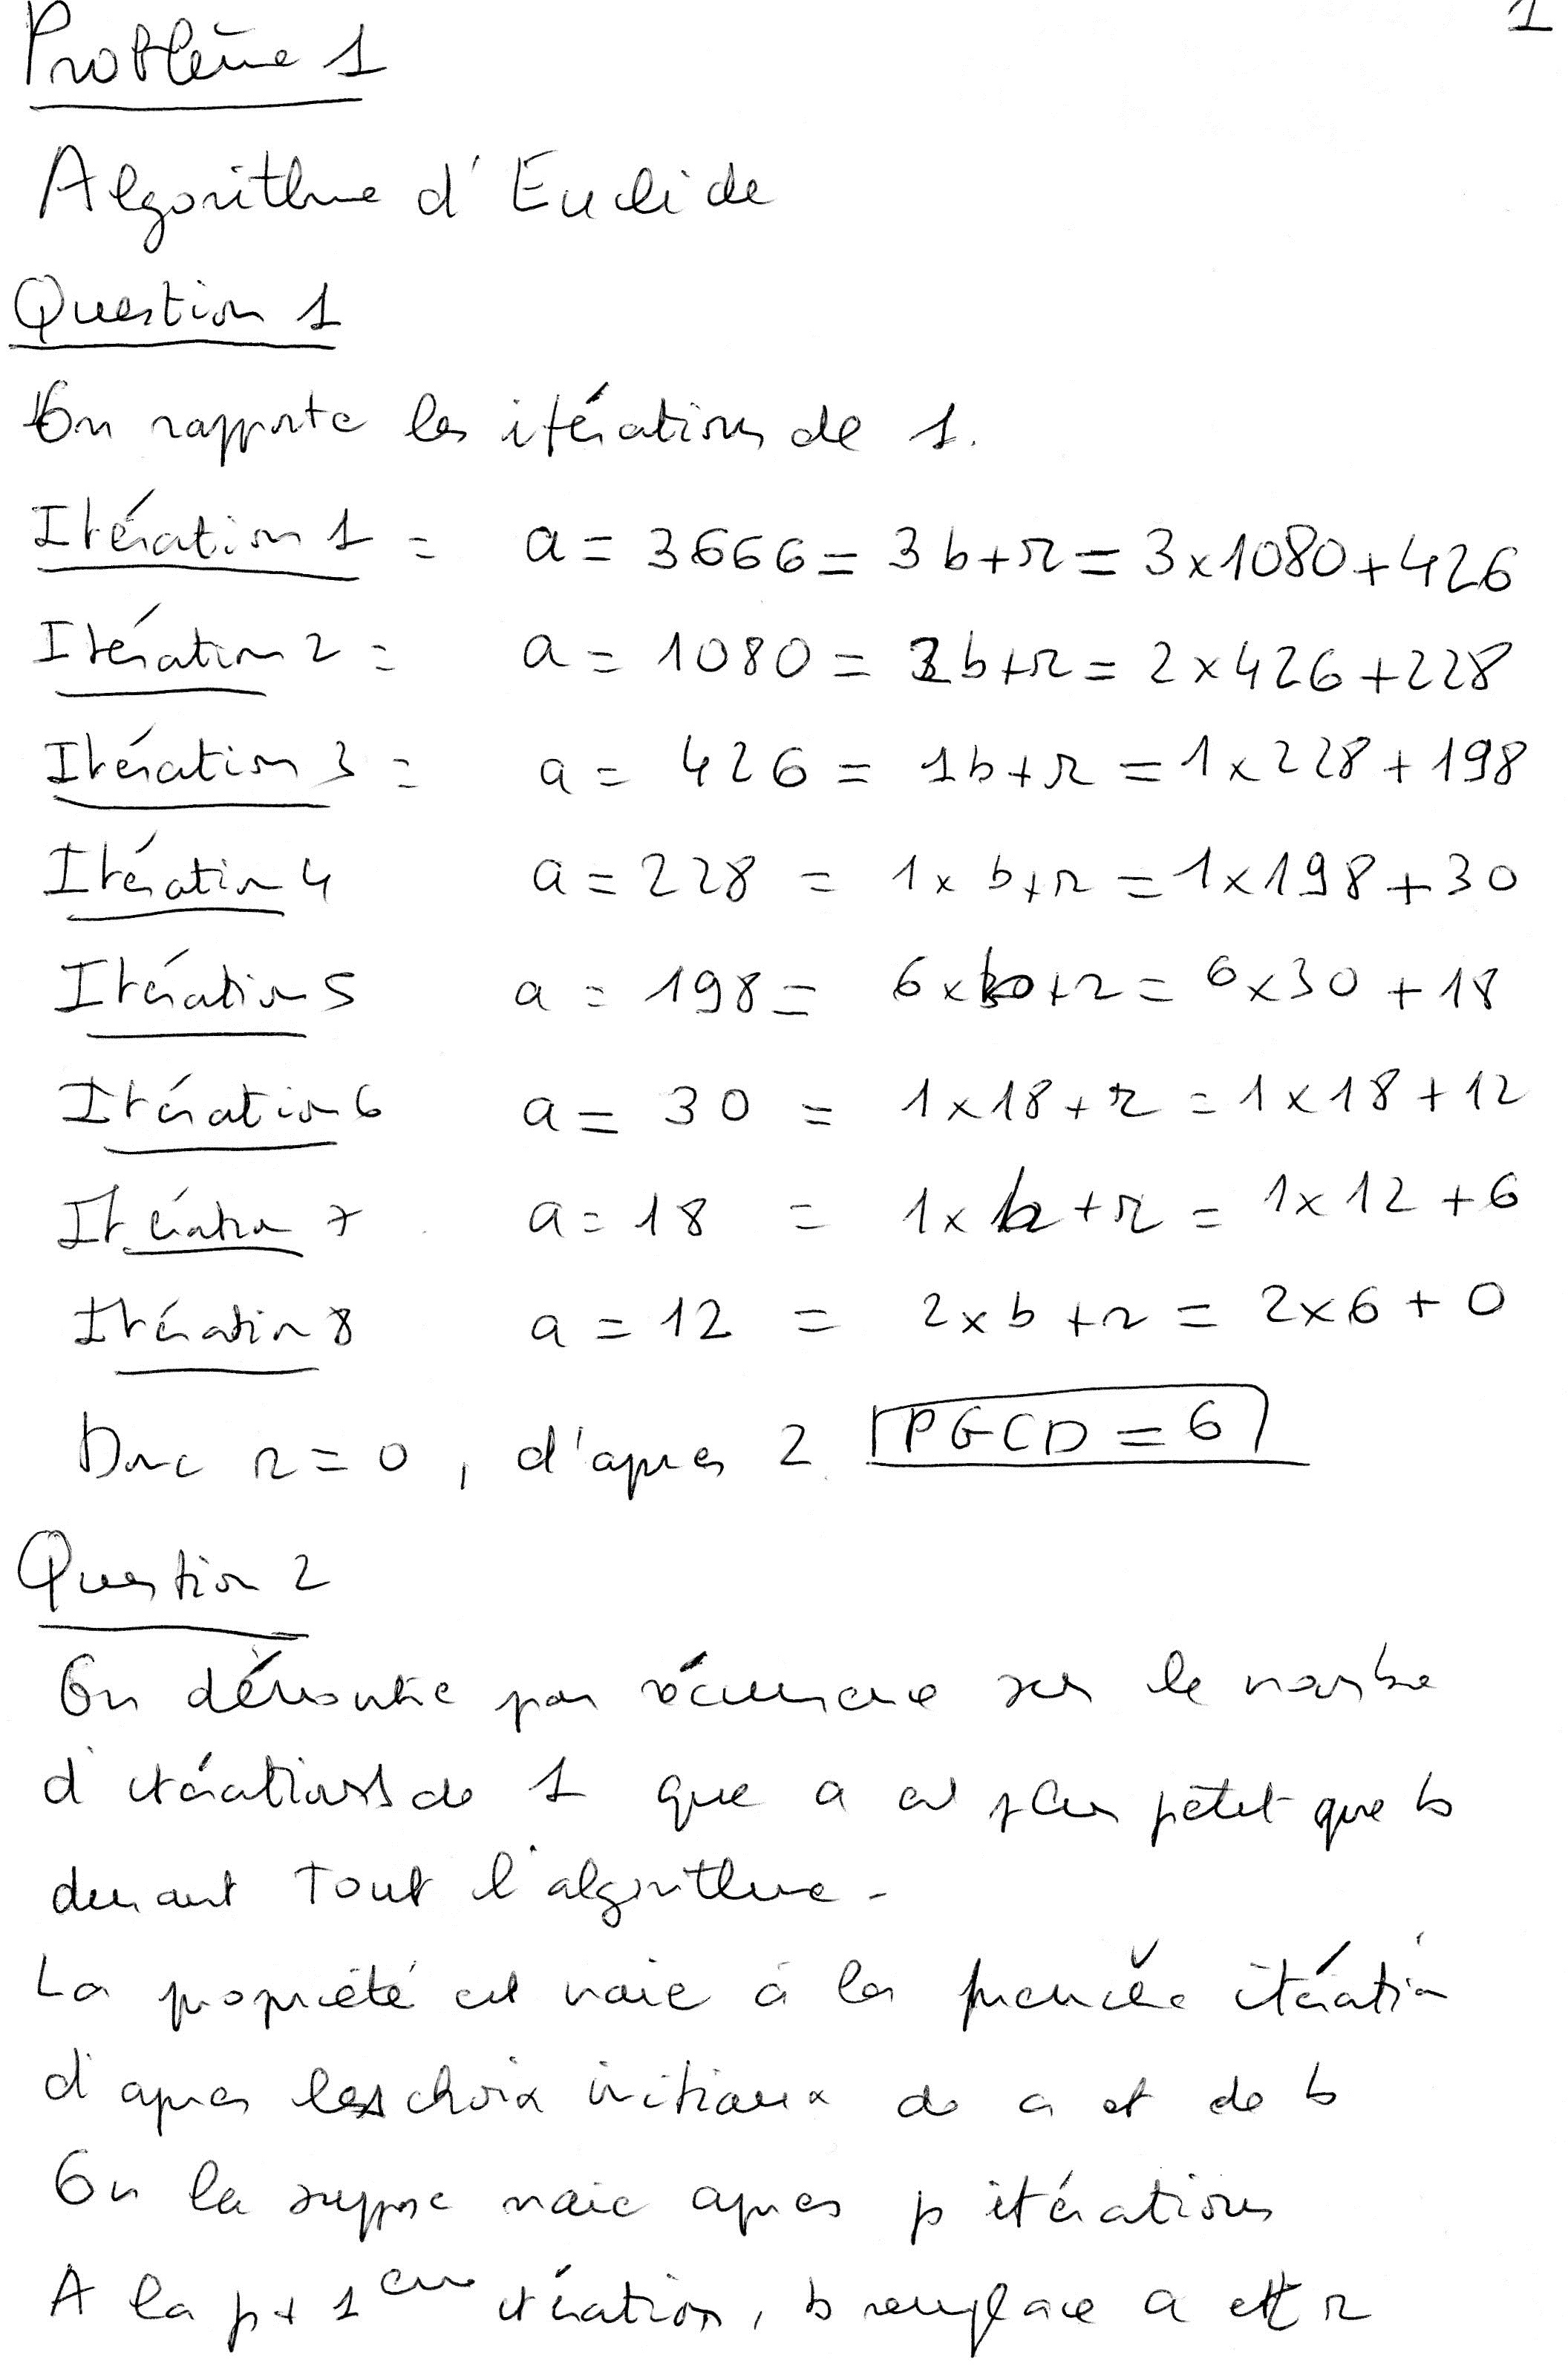 1
Problème 1
Algorithme d'Euclide
Question 1
On rapporte les itérations de 1.
Itération 1 = a = 3666 = 3b+r = 3x1080+426
Itération 2 = a = 1080 = 2b+r = 2x426+228
Itération 3 = a = 426 = 1b+r = 1x228+198
Itération 4 a = 228 = 1x b+r = 1x198+30
Itération 5 a = 198 = 6xb+r = 6x30+18
Itération 6 a = 30 = 1x18+r = 1x18+12
Itération 7 a = 18 = 1xb+r = 1x12+6
Itération 8 a = 12 = 2xb+r = 2x6+0
Donc r=0, d'après 2 PGCD = 6
Question 2
On démontre par récurrence sur le nombre
d'itérations de 1 que a est plus petit que b
durant tout l'algorithme.
La propriété est vraie à la première itération
d'après les choix initiaux de a et de b
On la suppose vraie après p itérations
A la p+1 ème itération, b remplace a et r